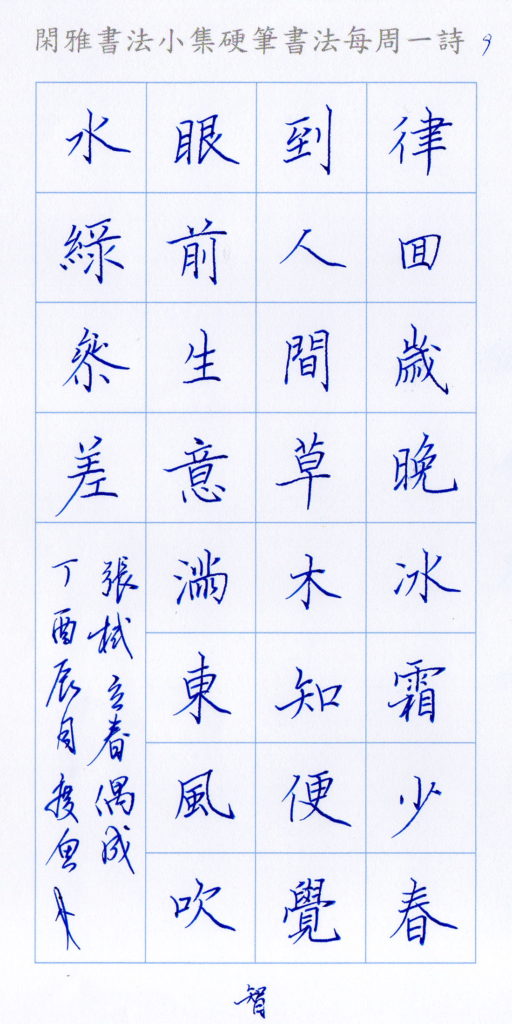 閑雅書法小集硬筆書法每周一詩 9
律回歲晚冰霜少春
到人間草木知便覺
眼前生意滿東風吹
水綠參差
張栻立春偶成
丁酉辰月
智